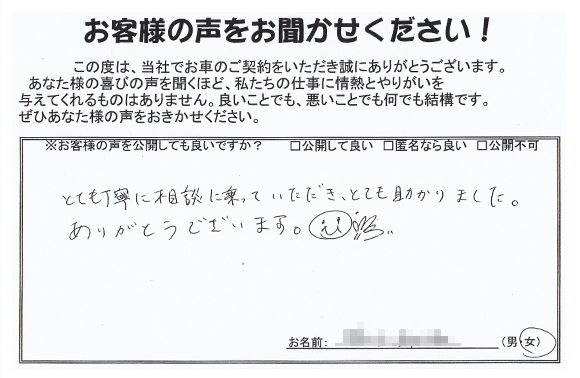 お客様の声をお聞かせください！
この度は、当社でお車のご契約をいただき誠にありがとうございます。
あなた様の喜びの声を聞くほど、私たちの仕事に情熱とやりがいを
与えてくれるものはありません。良いことでも、悪いことでも何でも結構です。
ぜひあなた様の声をおきかせください。
※お客様の声を公開しても良いですか？ □公開して良い □匿名なら良い □公開不可
とても丁寧に相談に乗っていただき、とても助かりました。
ありがとうございます。
お名前: (男・女)